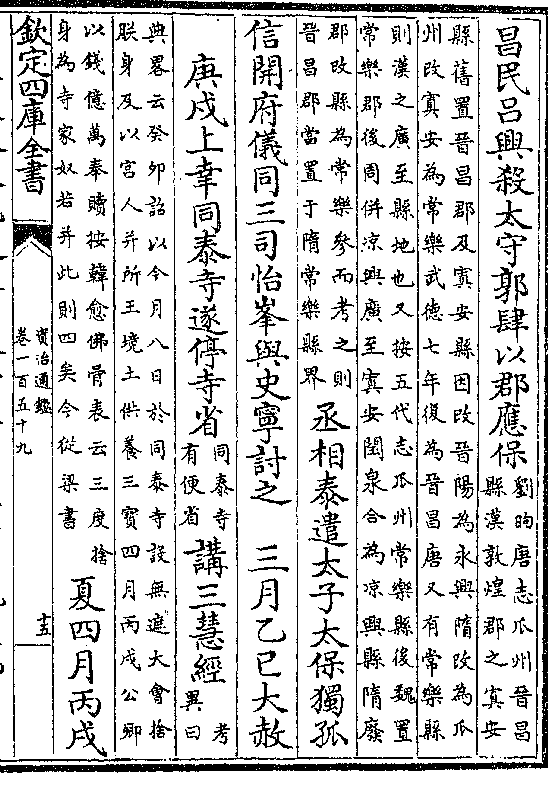 昌民吕興殺太守郭肆以郡應保劉昫唐志瓜州晉昌
縣漢敦煌郡之㝠安
縣舊置晉昌郡及㝠安縣因改晉陽為永興隋改為瓜
州改㝠安為常樂武徳七年復為晉昌唐又有常樂縣
則漢之廣至縣地也又按五代志瓜州常樂縣後魏置
常樂郡後周併凉興廣至㝠安閏泉合為凉興縣隋廢
郡改縣為常樂參而考之則
晉昌郡當置于隋常樂縣界
丞相泰遣太子太保獨孤
信開府儀同三司怡峯與史寧討之 三月乙巳大赦
庚戌上幸同泰寺遂停寺省同泰寺
有便省
講三慧經考
異曰
典畧云癸卯詔以今月八日於同泰寺設無遮大㑹捨
朕身及以宫人并所王境土供養三寶四月丙戌公卿
以錢億萬奉贖按韓愈佛骨表云三度捨
身為寺家奴若并此則四矣今從梁書
夏四月丙戌
欽定四庫全書
資治通鑑
卷一百五十九
十五